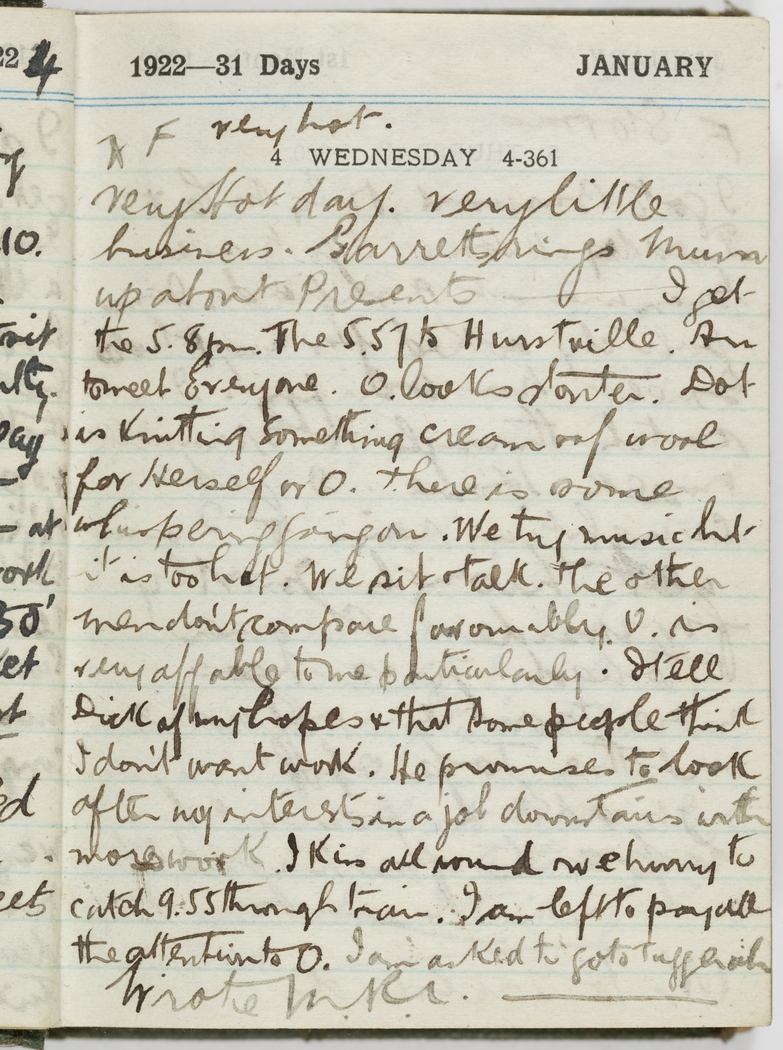 1922—31 Days JANUARY
F very hot.
4 WEDNESDAY 4-361
very Hot day. very little
business. Garretts rings Mum
up about Presents — I get
the 5.8pm. The 5.57 to Hurstville. Am
to meet Everyone. O. looks stouter. Dot
is Knitting Something cream of wool
for Herself or O. there is some
whispering going on. We try music but
it is too hot. We sit & talk. The other
men don't compare favourably. O. is
very affable to me particularly. I tell
Dick of my hopes & that some people think
I don't want work. He promises to look
after my interests in a job downstairs with
more work. I Kiss all round & we hurry to
catch 9.55 through train. I am left to pay all
the attention to O. I am asked to go to Tuggerah
Wrote
22 4
10.
Pay
at
work